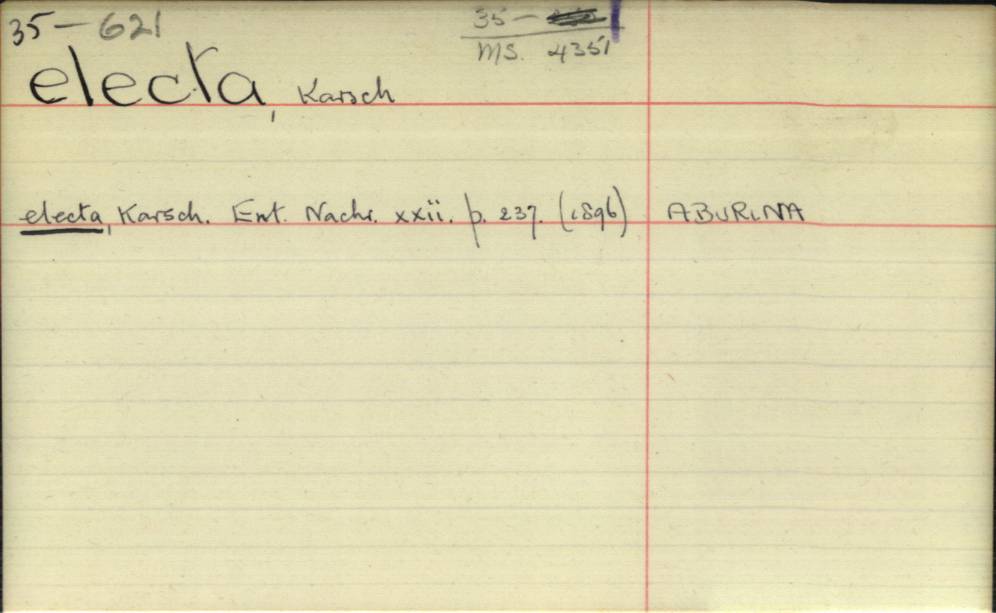 35 - 621
35 -
MS. 4351
electa, Karsch
electa, Karsch. Ent. Nachr. xxii. p. 237. (1896) ABURINA